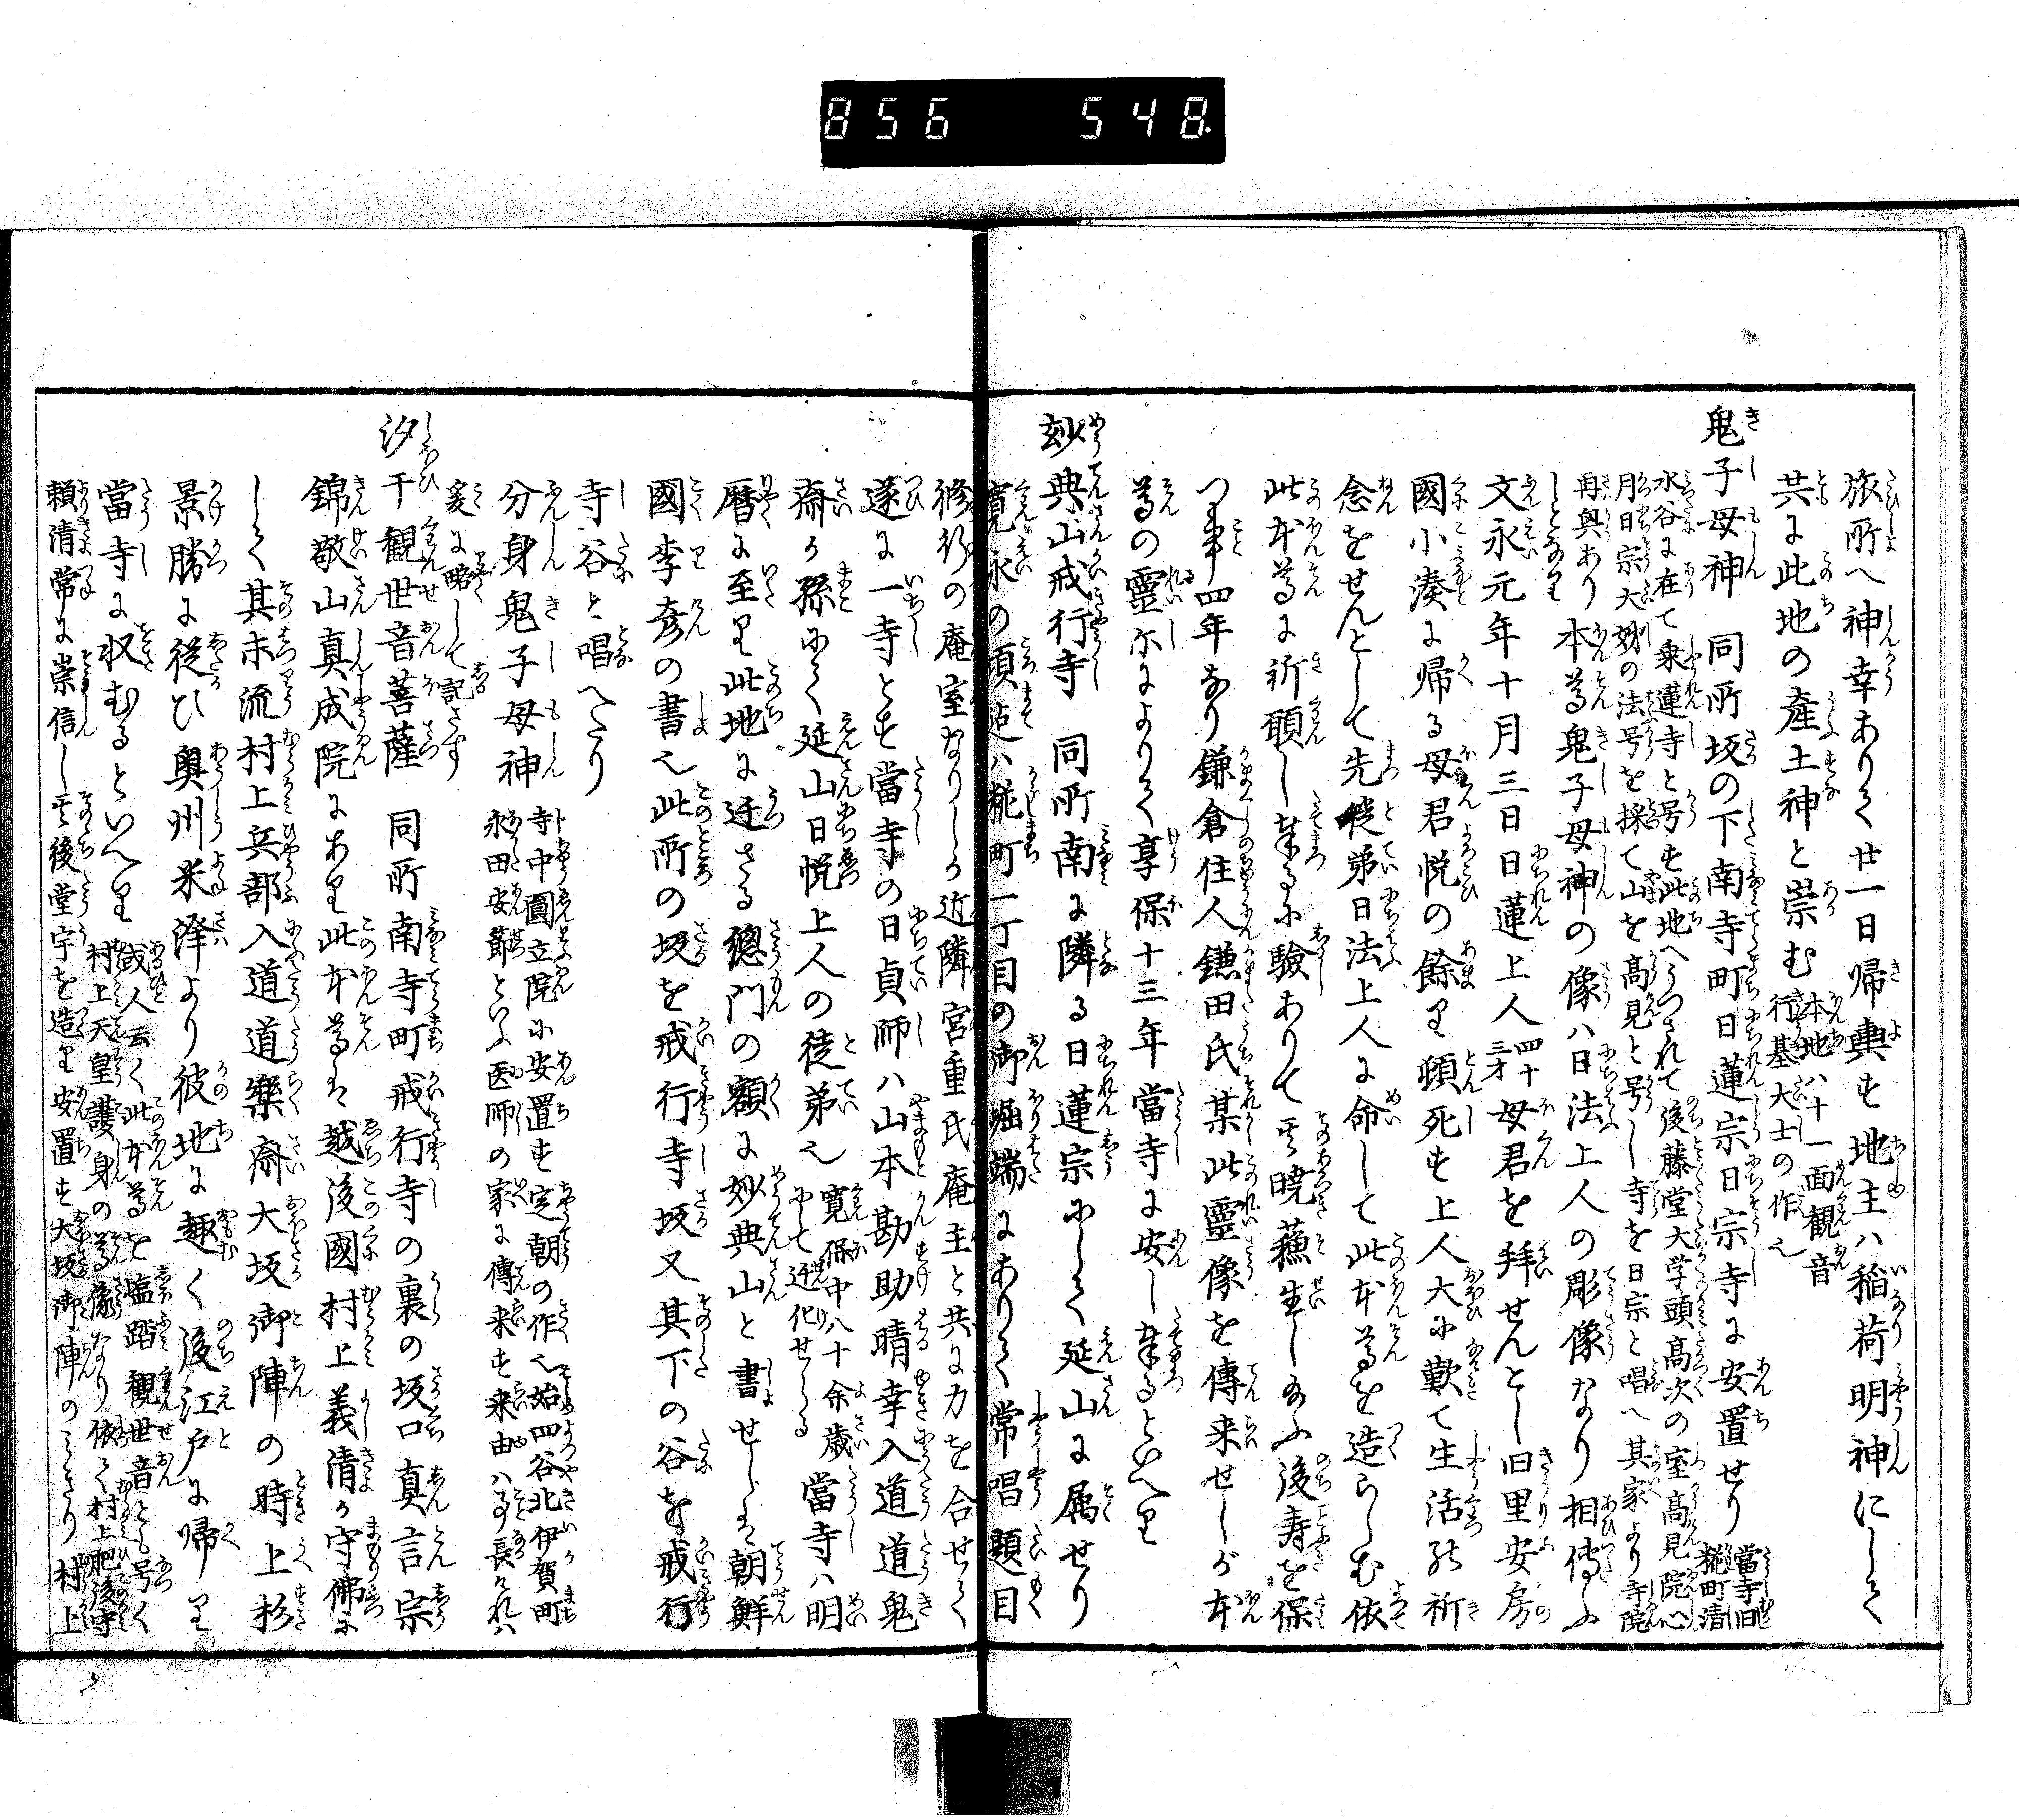 856 548.
旅所へ神幸ありて廿一日帰輿す地主ハ稲荷明神にして
共に此地の産土神と崇む 本地ハ十一面観音
行基大士の作也
鬼子母神 同所坂の下南寺町日蓮宗日宗寺に安置せり 當寺旧
糀町清
水谷に在て乗蓮寺と号す此地へうつされて後藤堂大学頭高次の室高見院心
月日宗大姉の法号を採て山を高見と号し寺を日宗と唱へ其家より寺院
再興あり
しとなり 本尊鬼子母神の像ハ日法上人の彫像なり相傳ふ
文永元年十月三日日蓮上人 四十
三才 母君を拜せんとし旧里安房
國小湊に帰る母君悦の餘り頓死す上人大に歎て生活の祈
念をせんとして先徒弟日法上人に命して此本尊を造らしむ依
此本尊に祈願し奉るに驗ありて其曉蘓生し給ふ後寿を保
つ事四年なり鎌倉住人鎌田氏某此靈像を傳来せしが本
尊の靈尓によりて享保十三年當寺に安し奉るといへり
妙典山戒行寺 同所南に隣る日蓮宗にして延山に属せり
寛永の頃迠ハ糀町一丁目の御堀端にありて常唱題目
修行の庵室なりしか近隣宮重氏庵主と共に力を合せて
遂に一寺とす當寺の日貞師ハ山本勘助晴幸入道道鬼
斎か孫にて延山日悦上人の徒弟也 寛保中八十余歳
にて迁化せらる 當寺ハ明
暦に至り此地に迁さる總門の額に妙典山と書せしは朝鮮
國李彦の書也此所の坂を戒行寺坂又其下の谷を戒行
寺谷と唱へたり
分身鬼子母神 寺中圓立院に安置す定朝の作也始四谷北伊賀町
永田安節といふ医師の家に傳来す来由ハ事長けれハ
爰に略して記さす
汐干観世音菩薩 同所南寺町戒行寺の裏の坂口真言宗
錦敬山真成院にあり此本尊は越後國村上義清か守佛に
して其末流村上兵部入道道樂斎大坂御陣の時上杉
景勝に従ひ奥州米澤より彼地に趣く後江戸に帰り
當寺に収むるといへり 或人云く此本尊を塩踏観世音とも号く
村上天皇護身の尊像なり依て村上肥後守
頼清常に崇信し其後堂宇を造り安置す大坂御陣のみきり村上